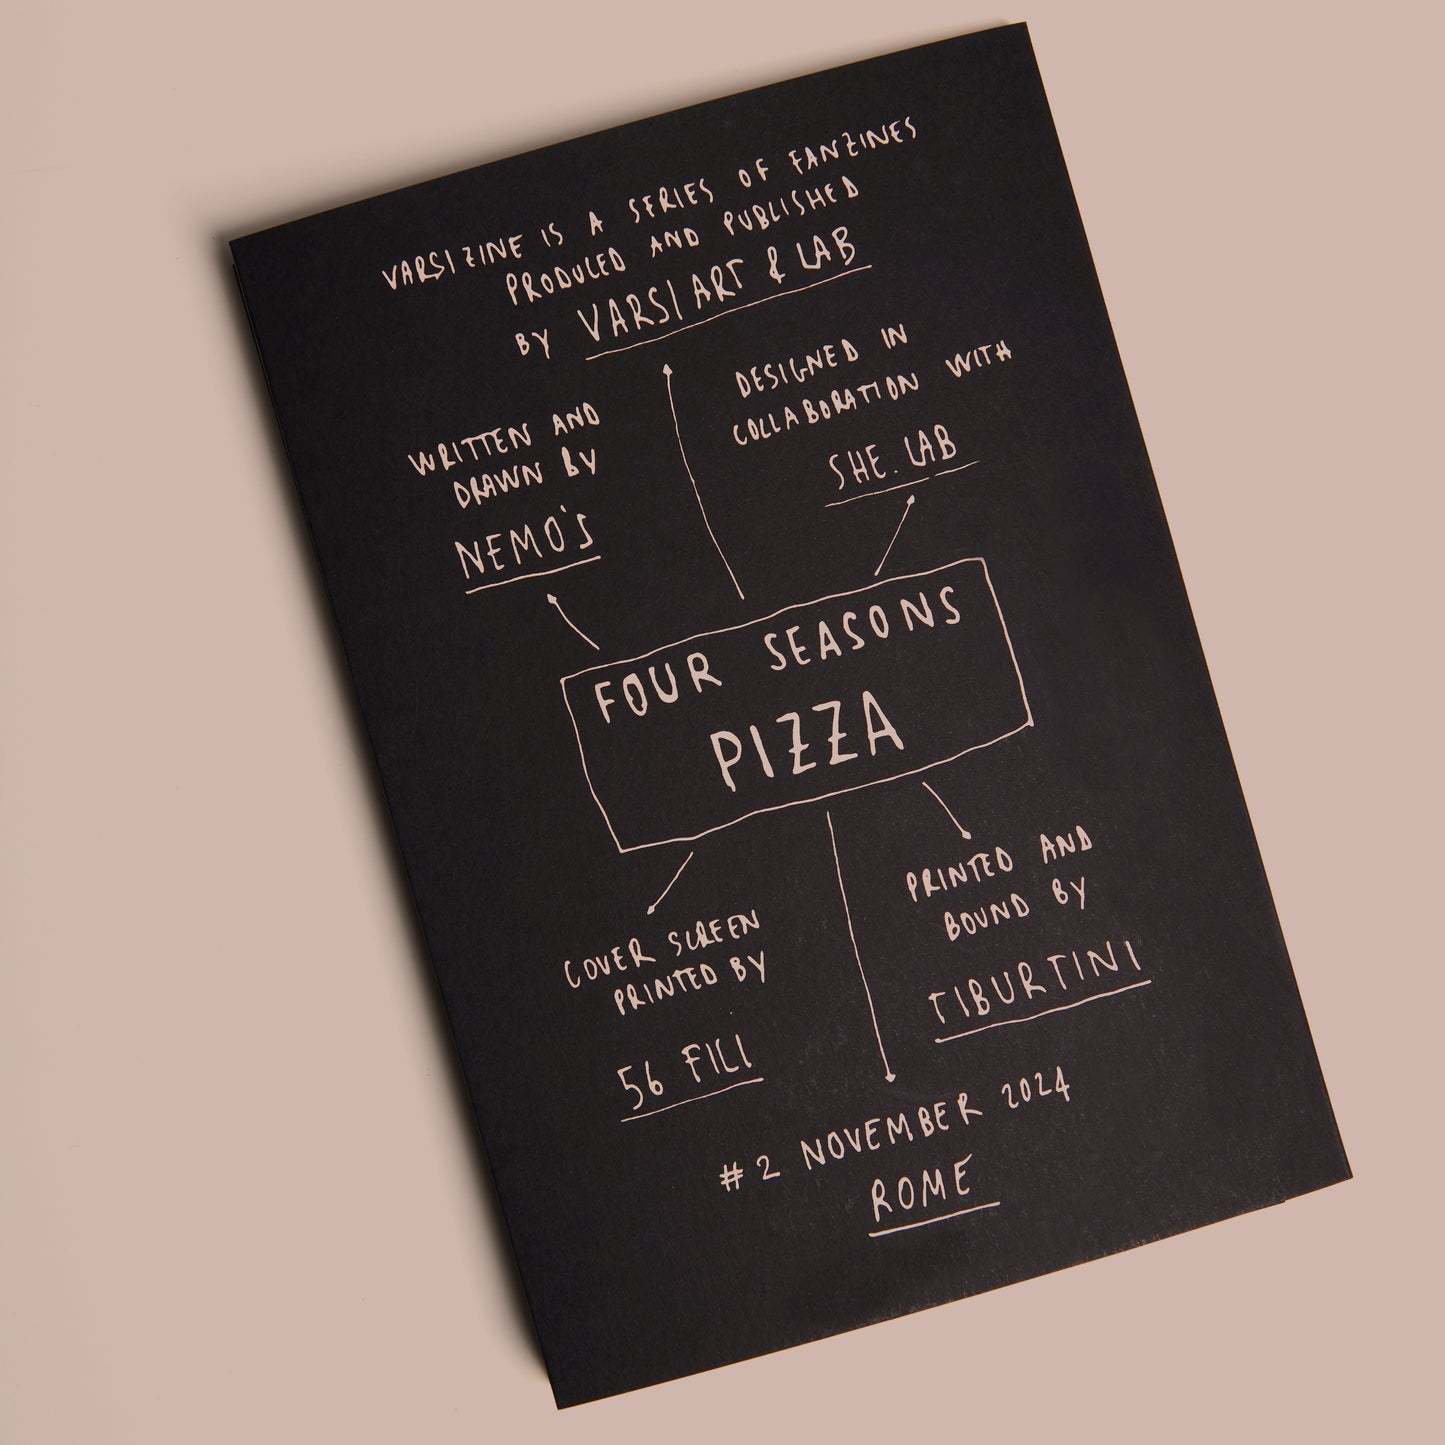 VARSIZINE IS A SERIES OF FANZINES
PRODUCED AND PUBLISHED
BY VARSI ART & LAB
WRITTEN AND
DRAWN BY
NEMO'S
DESIGNED IN
COLLABORATION WITH
SHE.LAB
FOUR SEASONS
PIZZA
COVER SCREEN
PRINTED BY
56 FILI
PRINTED AND
BOUND BY
TIBURTINI
#2 NOVEMBER 2024
ROME